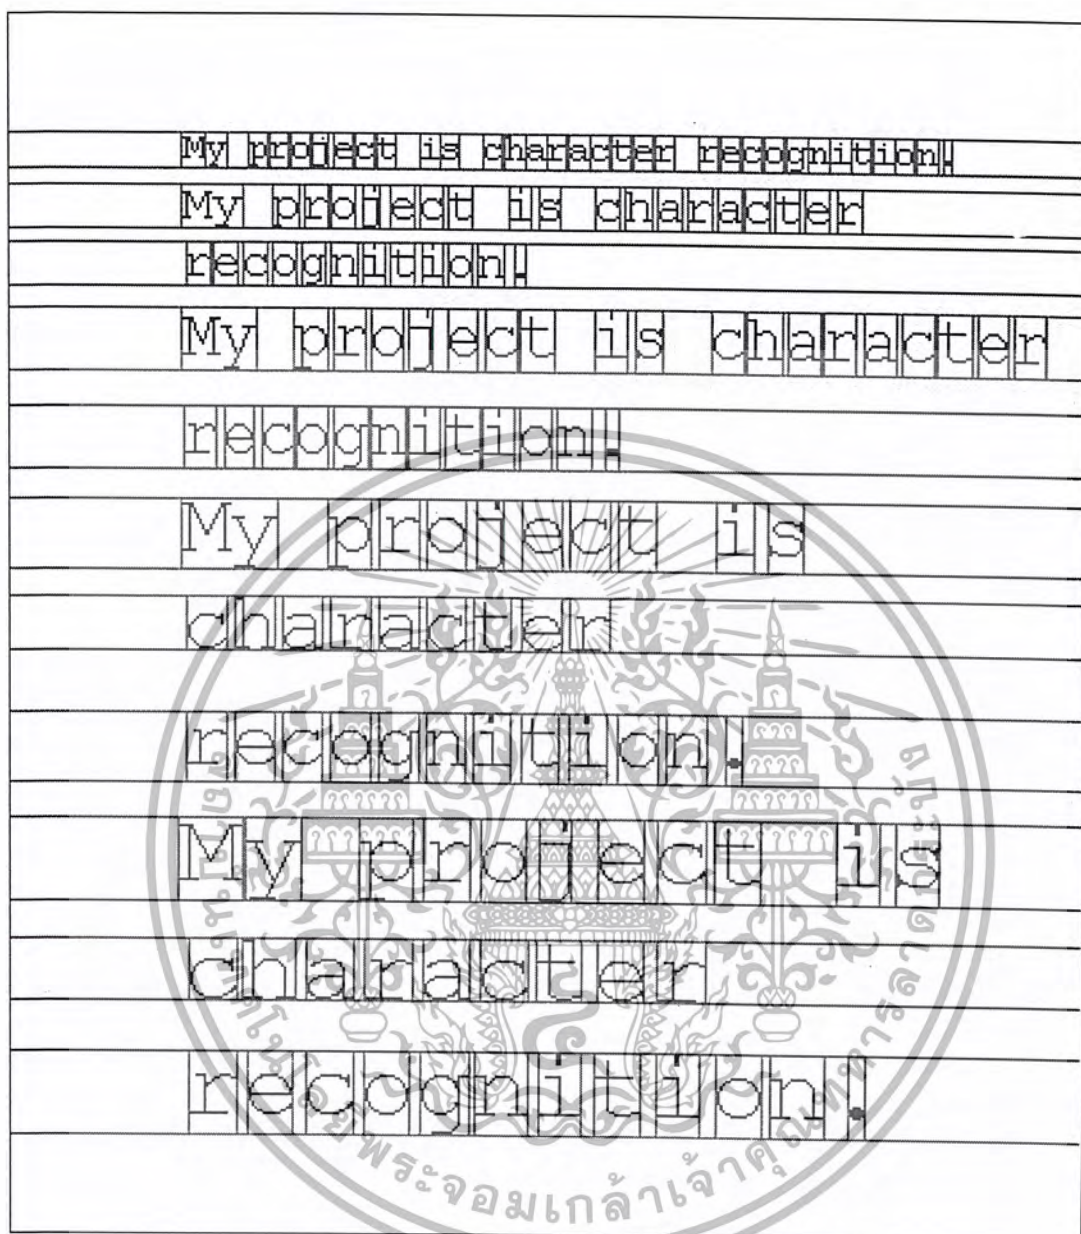 My project is character recognition!
My project is character
recognition!
My project is character
recognition!
My project is
character
recognition!
My project is
character
recognition!
สถาบันเทคโนโลยีพระจอมเกล้าเจ้าคุณทหารลาดกระบัง